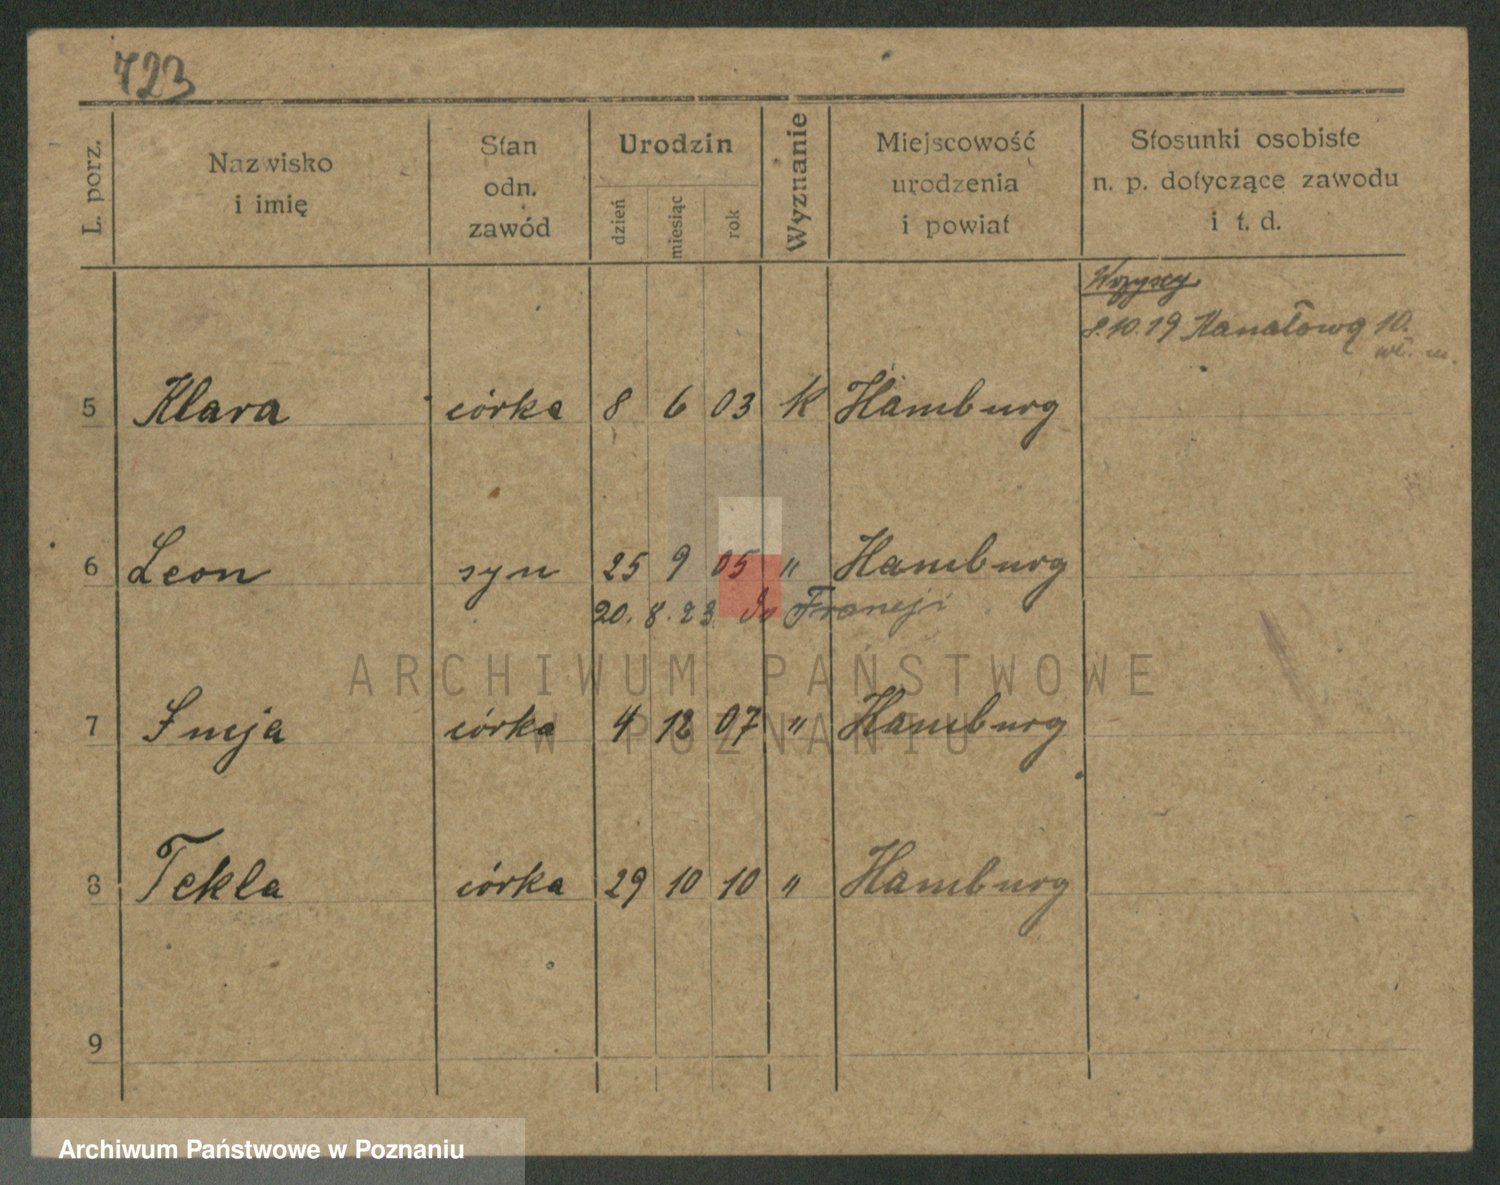 723
L. porz.
Nazwisko
i imię
Stan
odn.
zawód
Urodzin
dzień
miesiąc
rok
Wyznanie
Miejscowość
urodzenia
i powiat
Stosunki osobiste
n. p. dotyczące zawodu
i t. d.
Wszyscy
8.10.19 Kanałowa 10.
5 Klara córka 8 6 03 k Hamburg
6 Leon syn 25 9 05 " Hamburg
20. 8. 23 do Francji
7 córka 4 12 07 " Hamburg
8 Tekla córka 29 10 10 " Hamburg
9
ARCHIWUM PAŃSTWOWE
W POZNANIU
Archiwum Państwowe w Poznaniu